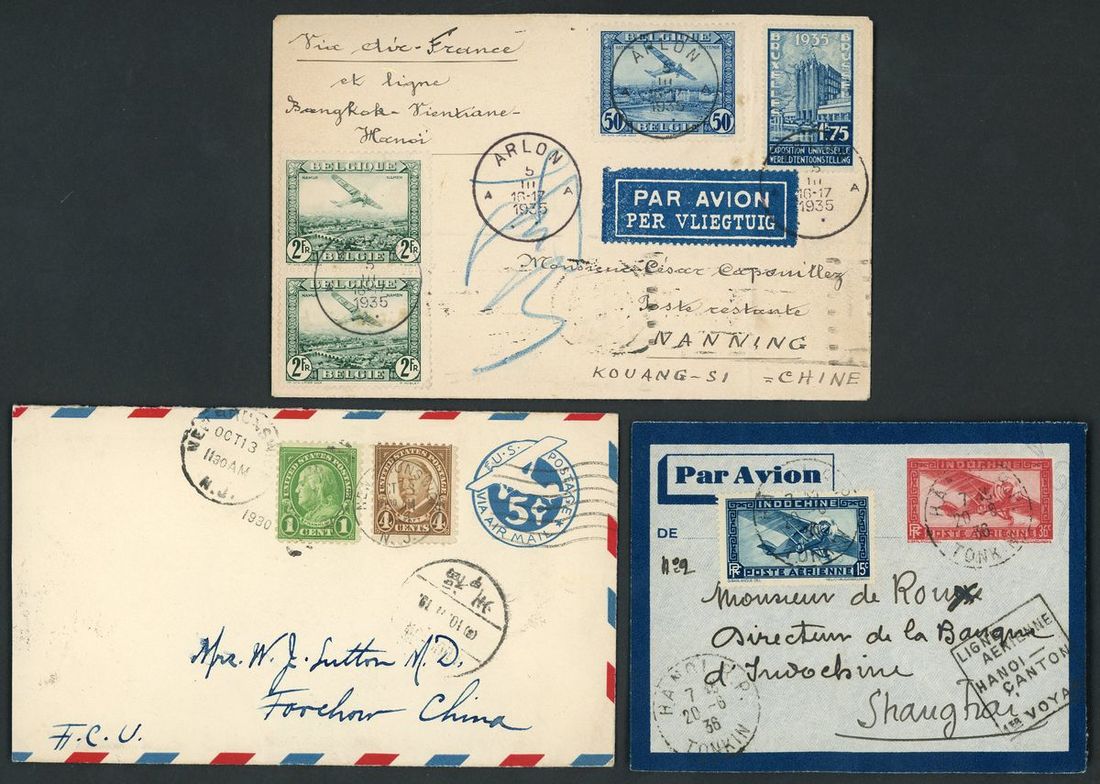 Via Air-France
et ligne
Bangkok-Vientiane-
Hanoï
BELGIQUE
50c 50c
BELGIE
ARLON
A A
5
III
1935
1935
BRUXELLES BRUSSEL
1F75
EXPOSITION UNIVERSELLE
WERELDTENTOONSTELLING
5
III
16-17
1935
A
ARLON
A A
5
III
16-17
1935
PAR AVION
PER VLIEGTUIG
BELGIQUE
NAMUR NAMEN
2FR 2FR
BELGIE
5
III
1935
BELGIQUE
NAMUR NAMEN
2FR 2FR
BELGIE
Monsieur César Capouillez
Poste restante
NANNING
KOUANG-SI =CHINE
OCT 13
1130 AM
N.J.
1930
UNITED STATES POSTAGE
1 1
CENT
UNITED STATES POSTAGE
4 4
CENTS
N.J.
U.S. POSTAGE
5¢
VIA AIR MAIL
Mrs. W. J. Sutton M.D.
Foochow China
F.C.U.
Par Avion
DE
No2
INDOCHINE
RF
POSTE AÉRIENNE 15c
INDOCHINE
RF
POSTE AÉRIENNE 36c
7
20-6
36
TONKIN
Monsieur de Roux
Directeur de la Banque
d'Indochine
Shanghai
HANOI R.P
7
20-6
36
TONKIN
LIGNE
AERIENNE
HANOI-
CANTON
1ER VOYA